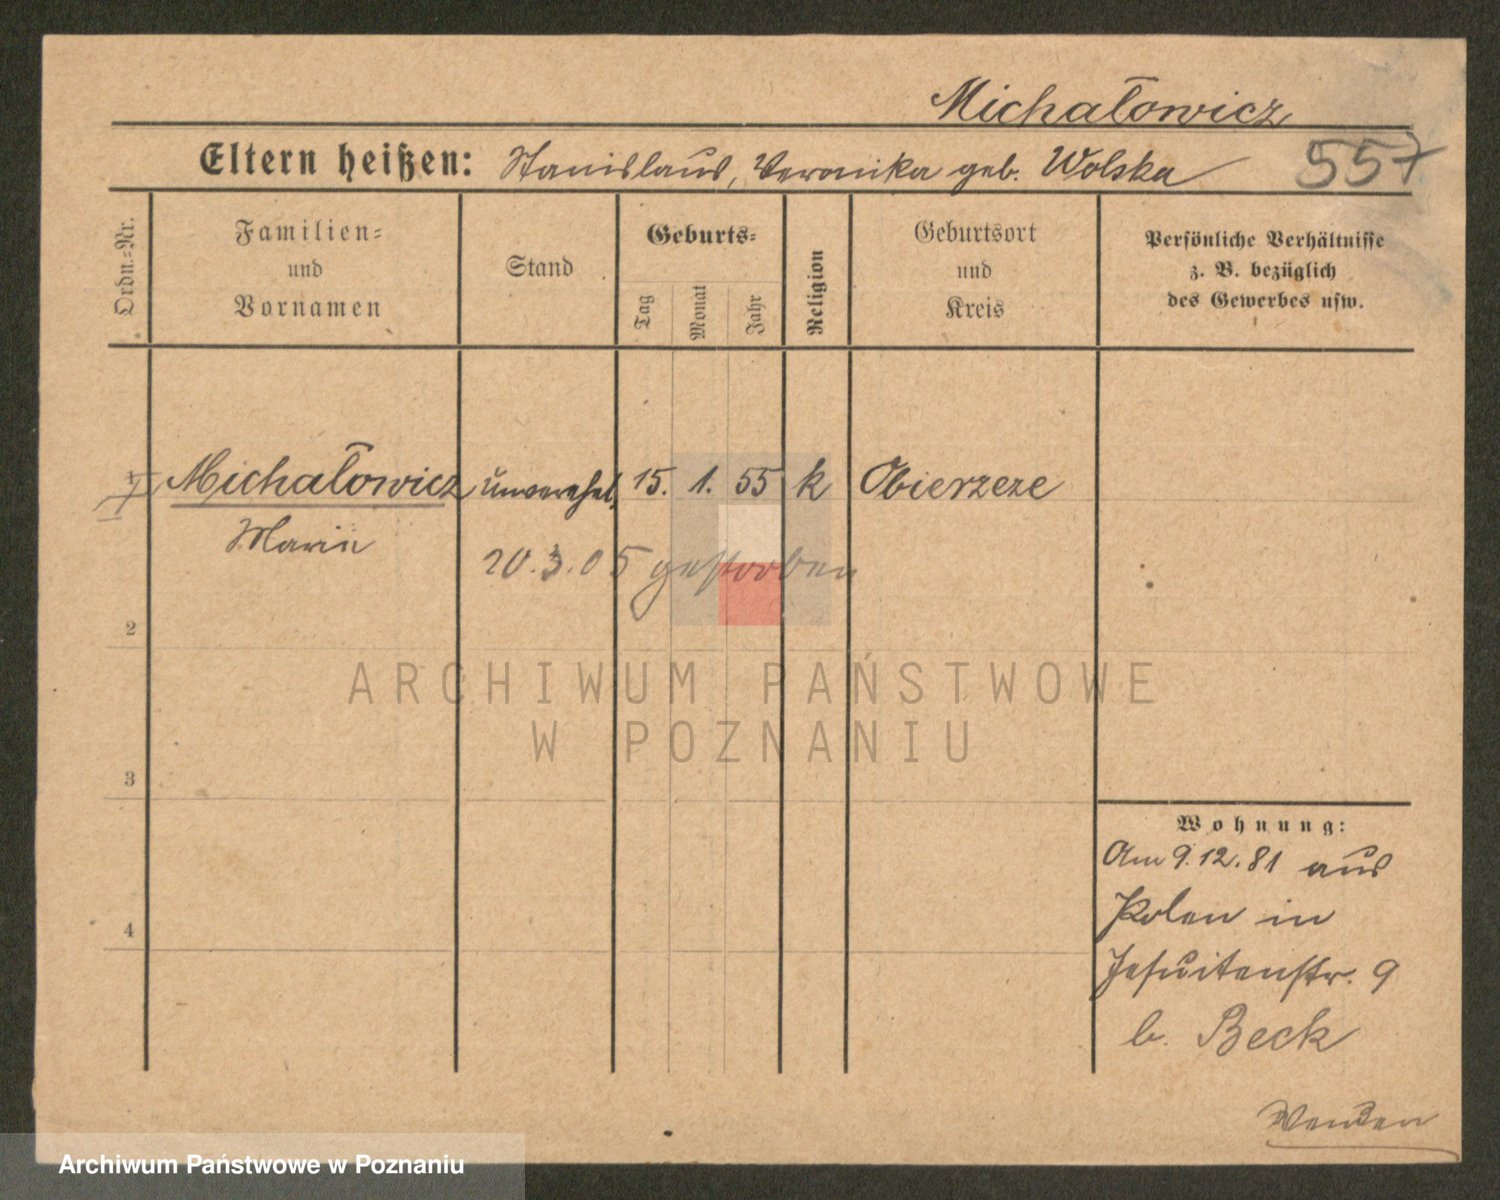 Michałowicz
Eltern heißen: Stanislaus, Veronika geb. Wolska 557
Ordn.=Nr.
Familien=
und
Vornamen
Stand
Geburts=
Tag
Monat
Jahr
Religion
Geburtsort
und
Kreis
Persönliche Verhältnisse
z. B. bezüglich
des Gewerbes usw.
1 Michałowicz unverehel. 15. 1. 55 k Obierzeze
Marie
20.3.05 gestorben
2
ARCHIWUM PAŃSTWOWE
W POZNANIU
3
4
Wohnung:
Am 9.12.81 aus
Polen in
Jesuitenstr. 9
b. Beck
Wenden
Archiwum Państwowe w Poznaniu